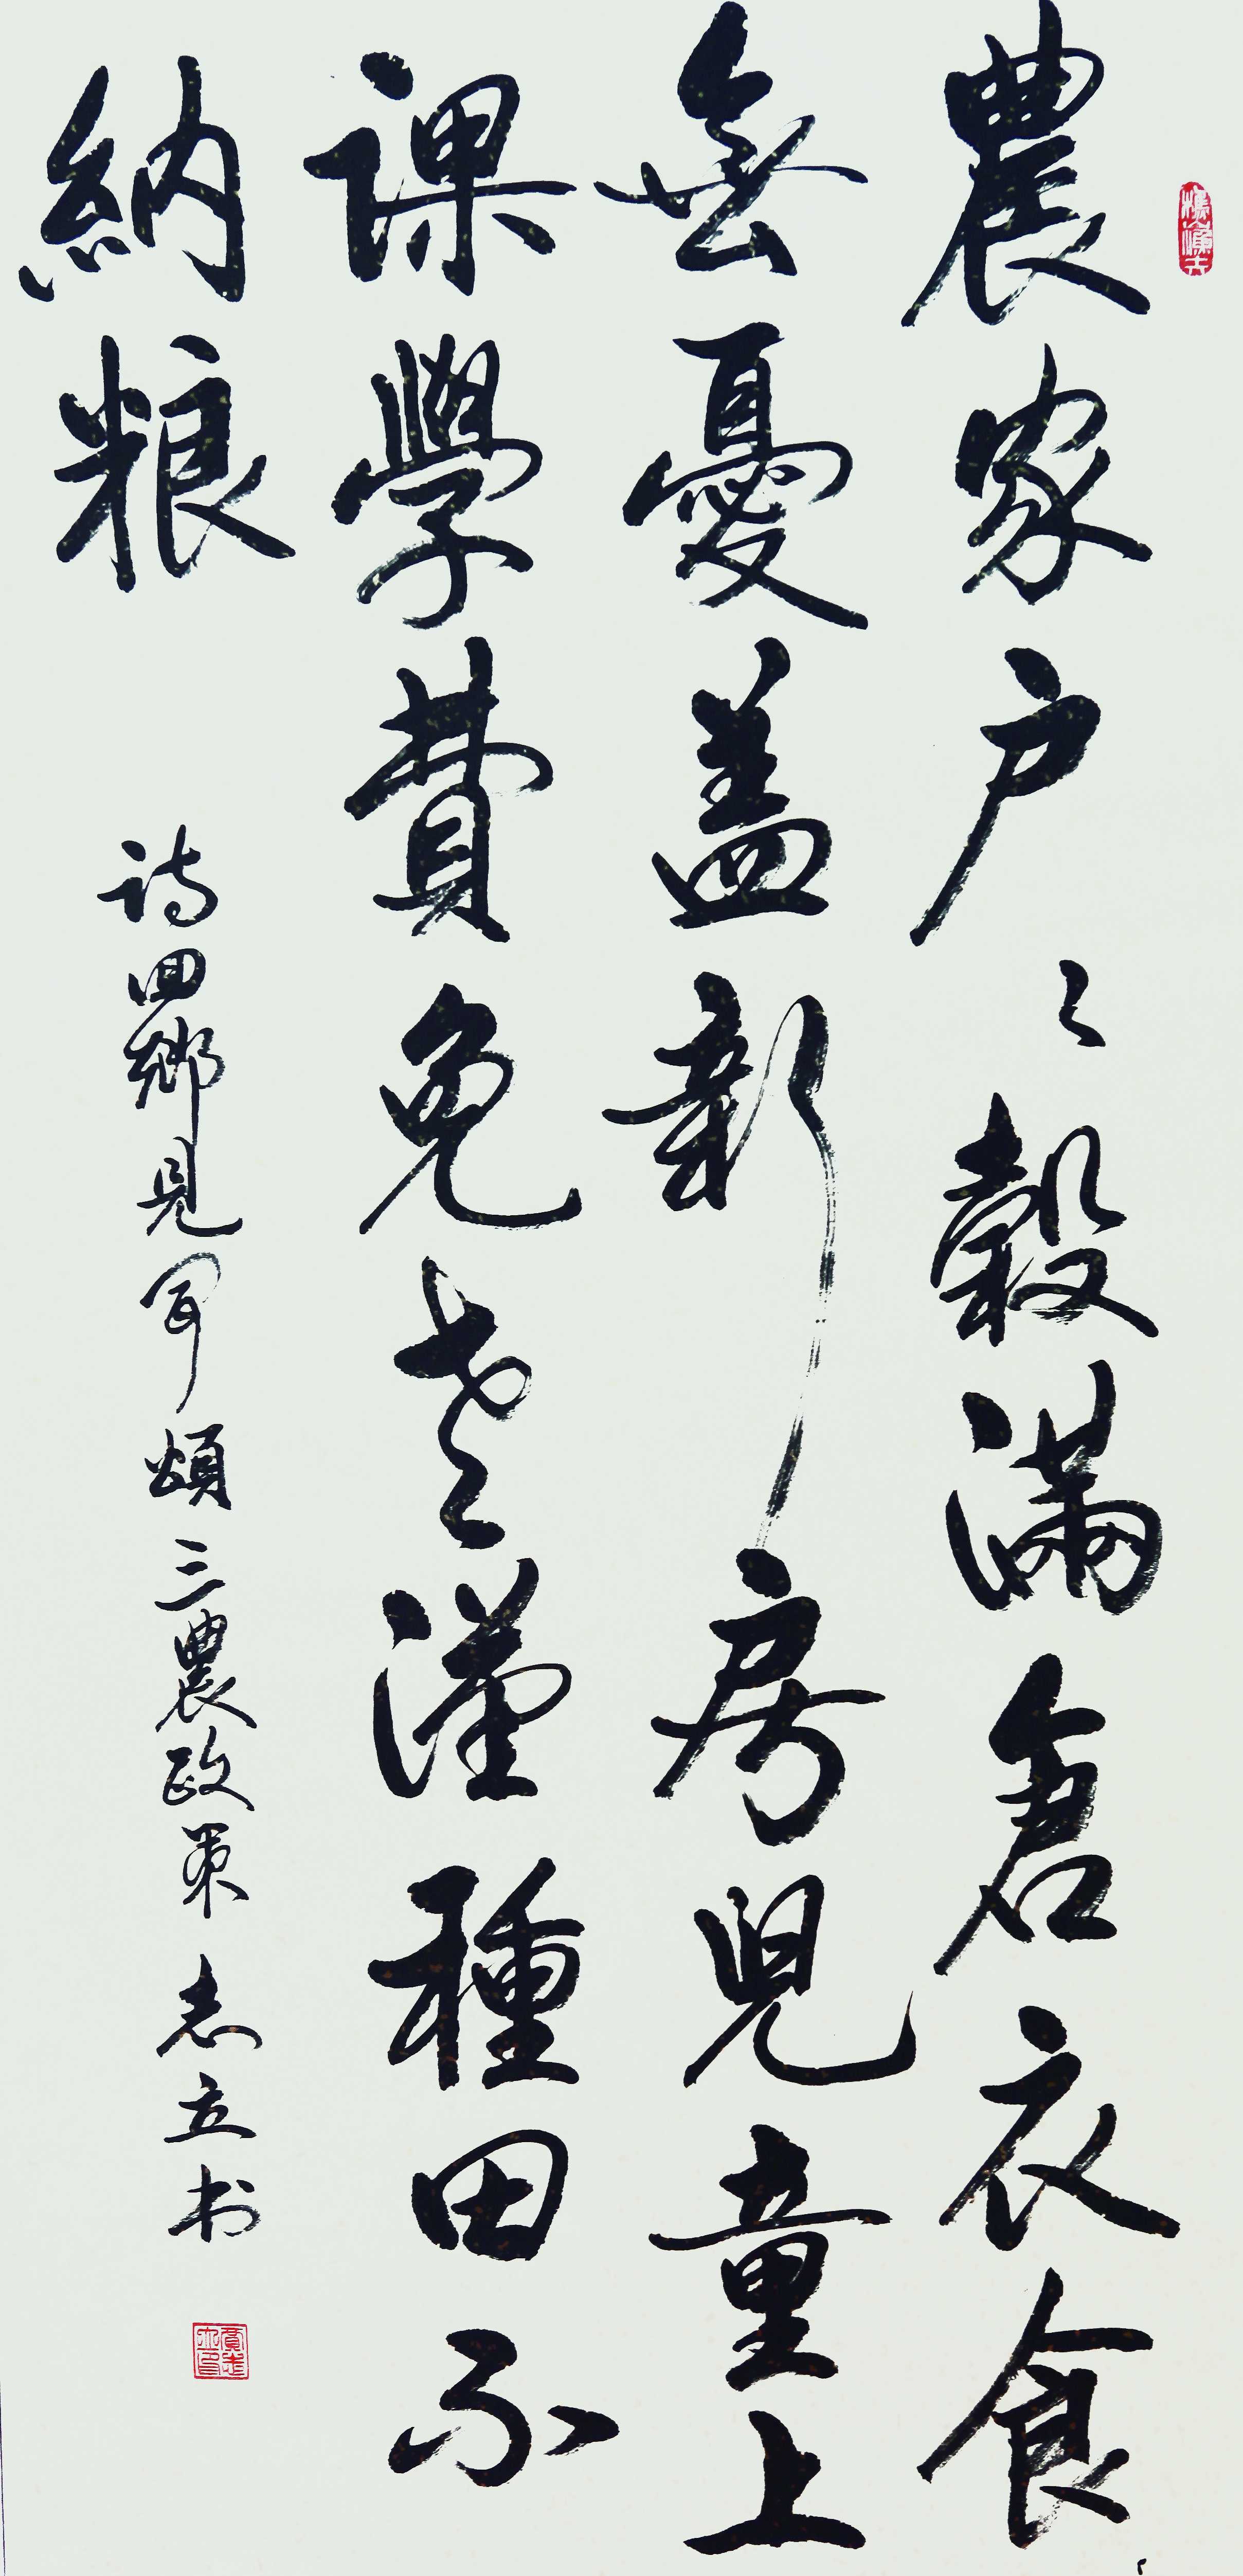 農家户々穀滿倉衣食
無憂盖新房兒童上
課學費免老漢種田不
納粮
詩回鄉見聞頌三農政策 志立书